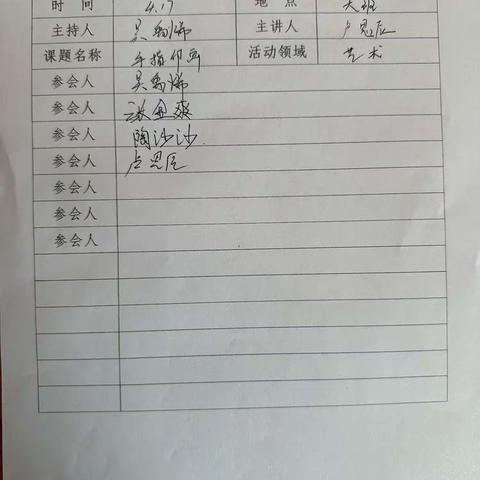 时 间 4.17 地 点 大班
主持人 吴 主讲人 卢恩辰
课题名称 手指印画 活动领域 艺术
参会人 吴
参会人 爽
参会人 陶沙沙
参会人 卢恩辰
参会人
参会人
参会人